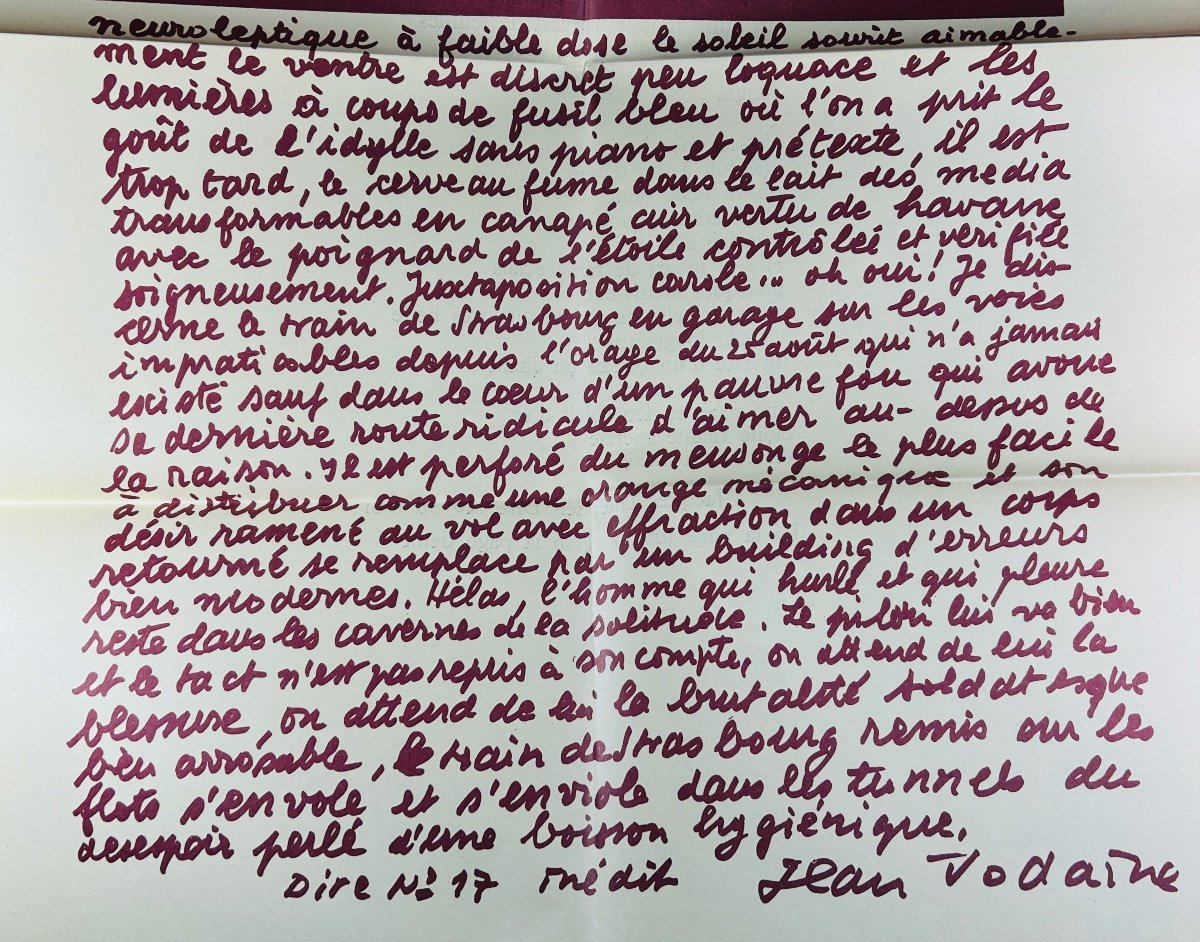 neuroleptique à faible dose le soleil sourit aimable-
ment le ventre est discret peu loquace et les
lumières à coups de fusil bleu où l'on a prit le
goût de l'idylle sans piano et prétexte, il est
trop tard, le cerveau fume dans le lait des media
transformables en canapé cuir vertu de havane
avec le poignard de l'étoile contrôlée et verifiée
soigneusement. Juxtaposition carole... oh oui! Je dis-
cerne le train de Strasbourg en garage sur les voies
impraticables depuis l'orage du 25 août qui n'a jamais
existé sauf dans le coeur d'un pauvre fou qui avoue
sa dernière route ridicule d'aimer au-dessus de
la raison. Il est perforé du mensonge le plus facile
à distribuer comme une orange mécanique et son
désir ramené au vol avec effraction dans un corps
retourné se remplace par un building d'erreurs
bien modernes. Hélas, l'homme qui hurle et qui pleure
reste dans les cavernes de la solitude. Le pilori lui va bien
et le tact n'est pas repris à son compte, on attend de lui la
blessure, on attend de lui la brutalité soldatesque
bien arrosable, le train de Strasbourg remis sur les
flots s'envole et s'enviole dans les tunnels du
desespoir perlé d'une boisson hygiénique.
Dire No 17 inédit Jean Vodaine